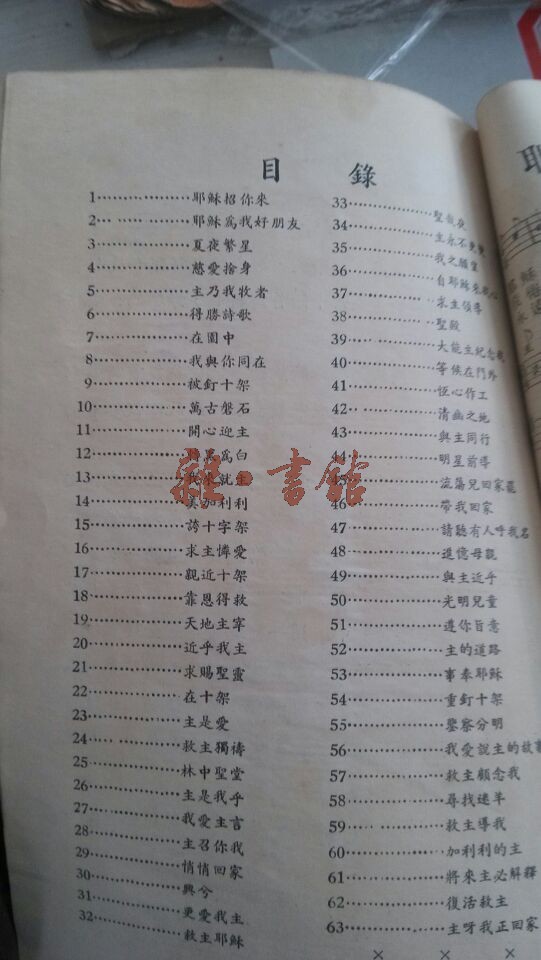 目 錄
1 耶穌招你來
2 耶穌爲我好朋友
3 夏夜繁星
4 慈愛捨身
5 主乃我牧者
6 得勝詩歌
7 在園中
8 我與你同在
9 被釘十架
10 萬古磐石
11 開心迎主
12 轉黑爲白
13 我來就主
14 美加利利
15 誇十字架
16 求主憐愛
17 親近十架
18 靠恩得救
19 天地主宰
20 近乎我主
21 求賜聖靈
22 在十架
23 主是愛
24 救主獨禱
25 林中聖堂
26 主是我乎
27 我愛主言
28 主召你我
29 悄悄回家
30 興兮
31 更愛我主
32 救主耶穌
33 聖哉夜
34 主永不更變
35 我之願望
36 自耶穌來我心
37 求主領導
38 聖殿
39 大能主紀念我
40 等候在門外
41 恆心作工
42 清幽之地
43 與主同行
44 明星前導
45 流蕩兒回家罷
46 帶我回家
47 請聽有人呼我名
48 追憶母親
49 與主近乎
50 光明兒童
51 遵你旨意
52 主的道路
53 事奉耶穌
54 重釘十架
55 鑒察分明
56 我愛說主的故事
57 救主顧念我
58 尋找迷羊
59 救主導我
60 加利利的主
61 將來主必解釋
62 復活救主
63 主呀我正回家
× × ×
書館